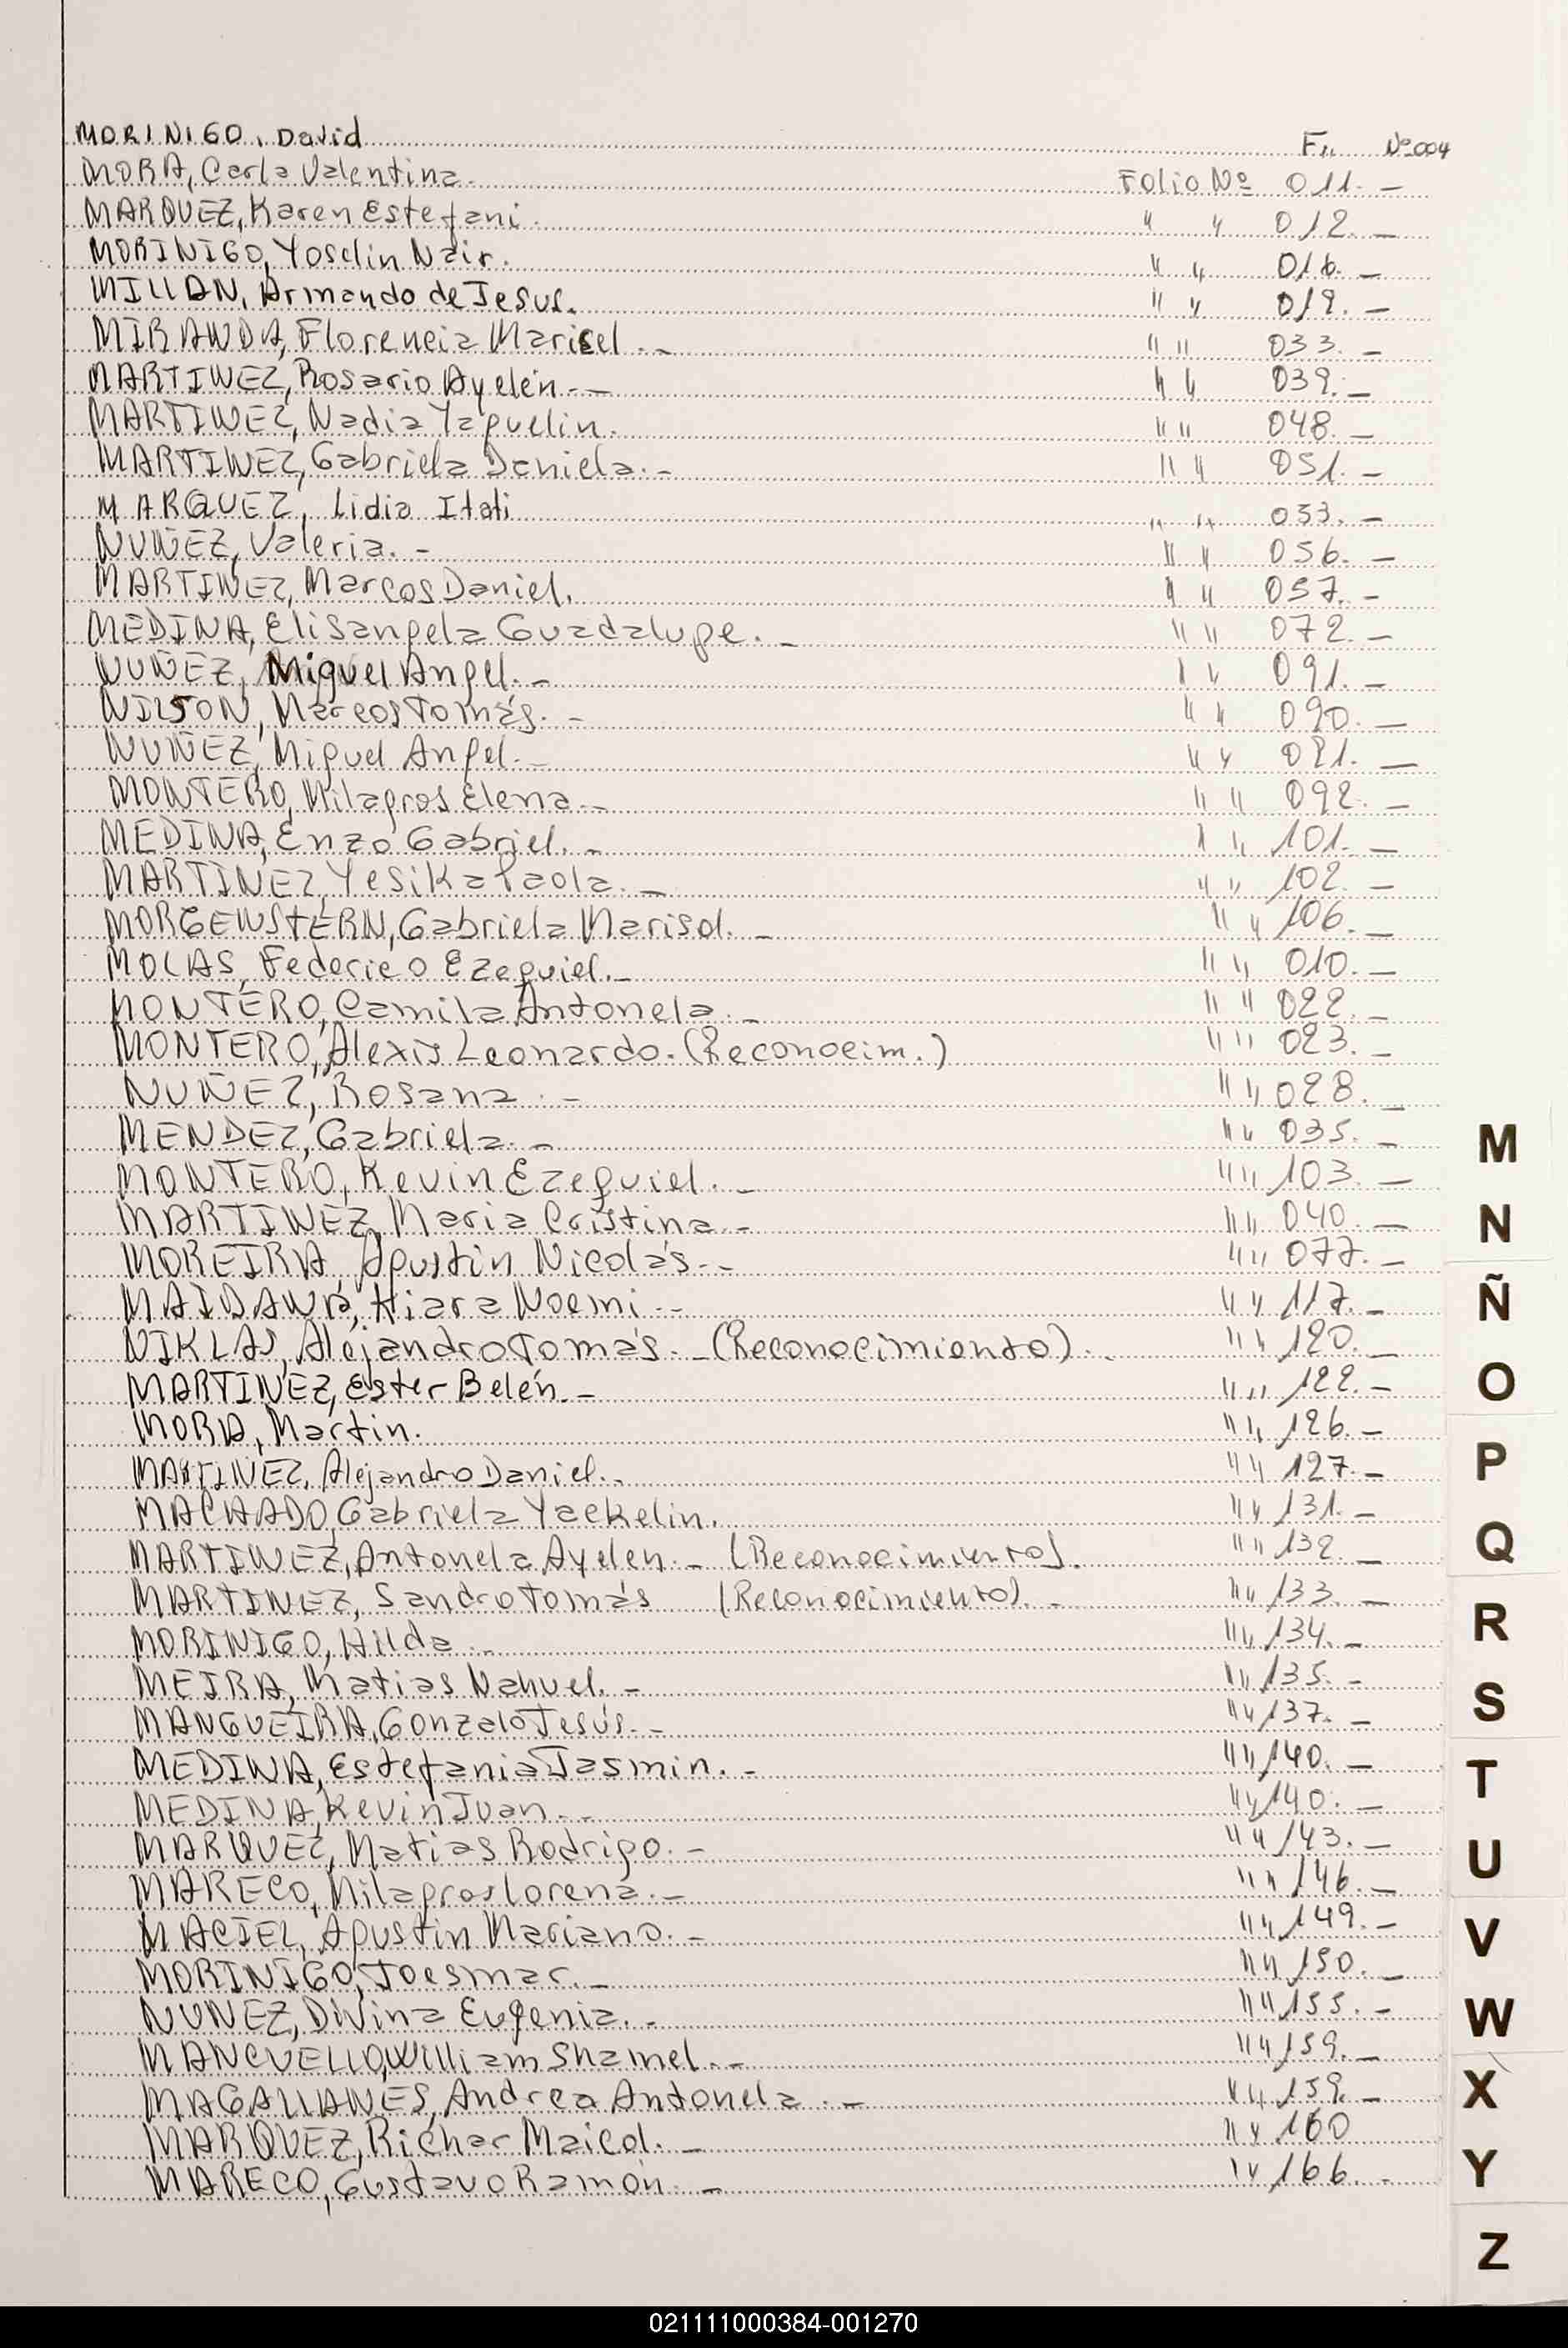 MORINIGO, David F,, Nº 004
MORA, Carla Valentina. Folio Nº 011. —
MARQUEZ, Karen Estefani. " " 012. —
MORINIGO, Yoselin Nair. " " 016. —
MILLAN, Armando de Jesus. " " 019. —
MIRANDA, Florencia Maricel. - " " 033. —
MARTINEZ, Rosario Ayelén. — " " 039. —
MARTINEZ, Nadia Yaquelin. " " 048. —
MARTINEZ, Gabriela Daniela. - " " 051. —
MARQUEZ, Lidia Itati " " 053. —
NUÑEZ, Valeria. - " " 056. —
MARTINEZ, Marcos Daniel. " " 057. -
MEDINA, Elisangela Guadalupe. - " " 072. —
NUÑEZ, Miguel Angel. - " " 091. —
NILSON, Marcos Tomás. - " " 090. —
NUÑEZ, Miguel Angel. - " " 091. —
MONTERO, Milagros Elena. - " " 092. —
MEDINA, Enzo Gabriel. - " " 101. —
MARTINEZ, Yesika Paola. — " " 102. —
MORGENSTERN, Gabriela Marisol. - " " 106. —
MOLAS, Federico Ezequiel. - " " 010. —
MONTERO, Camila Antonela. - " " 022. —
MONTERO, Alexis Leonardo. (Reconocim.) " " 023. —
NUÑEZ, Rosana. - " " 028. —
MENDEZ, Gabriela. - " " 035. —
MONTERO, Kevin Ezequiel. - " " 103. —
MARTINEZ, Maria Cristina. - " " 040. —
MOREIRA, Agustin Nicolás. - " " 077. —
MAIDANA, Kiara Noemi. - " " 117. —
NIKLAS, Alejandro Tomás. - (Reconocimiento). " " 120. —
MARTINEZ, Ester Belén. - " " 122. —
MORA, Martin. " " 126. —
MARTINEZ, Alejandro Daniel. - " " 127. —
MACHADO, Gabriela Yackelin. " " 131. —
MARTINEZ, Antonela Ayelen. - (Reconocimiento). " " 132. —
MARTINEZ, Sandro Tomás (Reconocimiento). - " " 133. —
MORINIGO, Hilda. - " " 134. —
MEIRA, Matias Nahuel. - " " 135. -
MANGUEIRA, Gonzalo Jesús. - " " 137. —
MEDINA, Estefania Jasmin. - " " 140. —
MEDINA, Kevin Juan. - " " 140. —
MARQUEZ, Matias Rodrigo. - " " 143. —
MARECO, Milagros Lorena. - " " 146. —
MACIEL, Agustin Mariano. - " " 149. —
MORINIGO, Joesmar. - " " 150. —
NUNEZ, Divina Eugenia. - " " 155. —
MANCUELLO, William Shamel. - " " 159. —
MAGALLANES, Andrea Antonela. - " " 159. —
MARQUEZ, Richar Maicol. - " " 160
MARECO, Gustavo Ramón. - " " 166. -
M
N
Ñ
O
P
Q
R
S
T
U
V
W
X
Y
Z
021111000384-001270